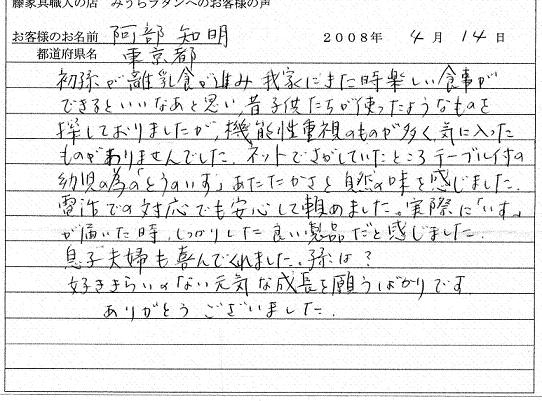 籐家具職人の店 みうらラタンへのお客様の声
お客様のお名前 阿部 知明 2008年 4月 14日
都道府県名 東京都
初孫が離乳食が進み 我家にきた時楽しい食事が
できるといいなあと思い、昔子供たちが使ったようなものを
探しておりましたが、機能性重視のものが多く気に入った
ものがありませんでした。ネットでさがしていたところテーブル付の
幼児の為の「とうのいす」あたたかさと自然の味を感じました。
電話での対応でも安心して頼めました。実際に「いす」
が届いた時、しっかりした良い製品だと感じました。
息子夫婦も喜んでくれました。孫は?
好ききらいのない元気な成長を願うばかりです。
ありがとうございました。